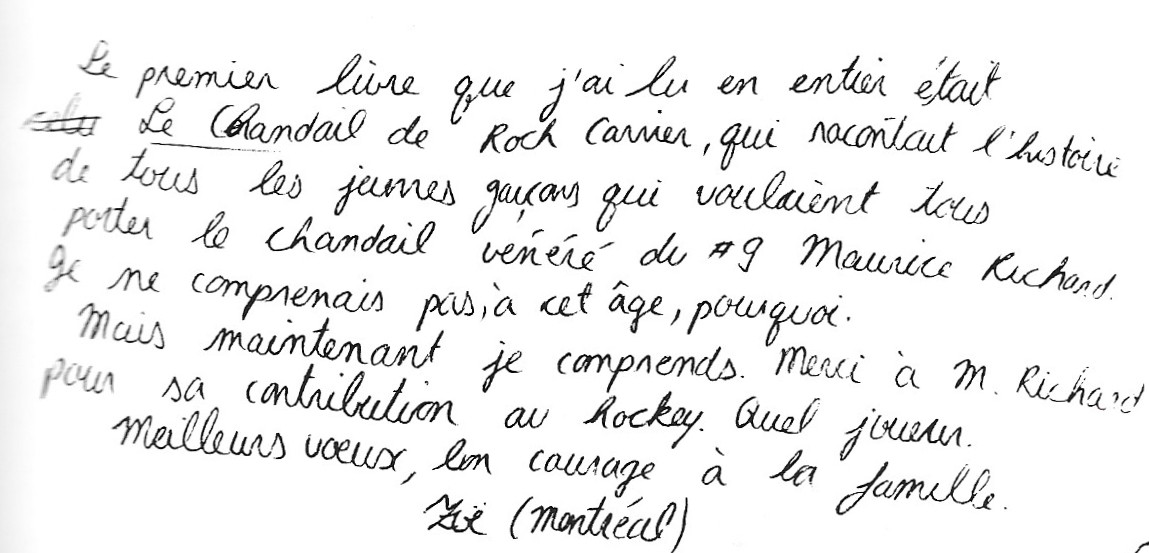 Le premier livre que j'ai lu en entier était
Le Chandail de Roch Carrier, qui racontait l'histoire
de tous les jeunes garçons qui voulaient tous
porter le chandail vénéré du #9 Maurice Richard.
Je ne comprenais pas, à cet âge, pourquoi.
Mais maintenant je comprends. Merci à M. Richard
pour sa contribution au hockey. Quel joueur.
Meilleurs vœux, bon courage à la famille.
Zoë (Montréal)